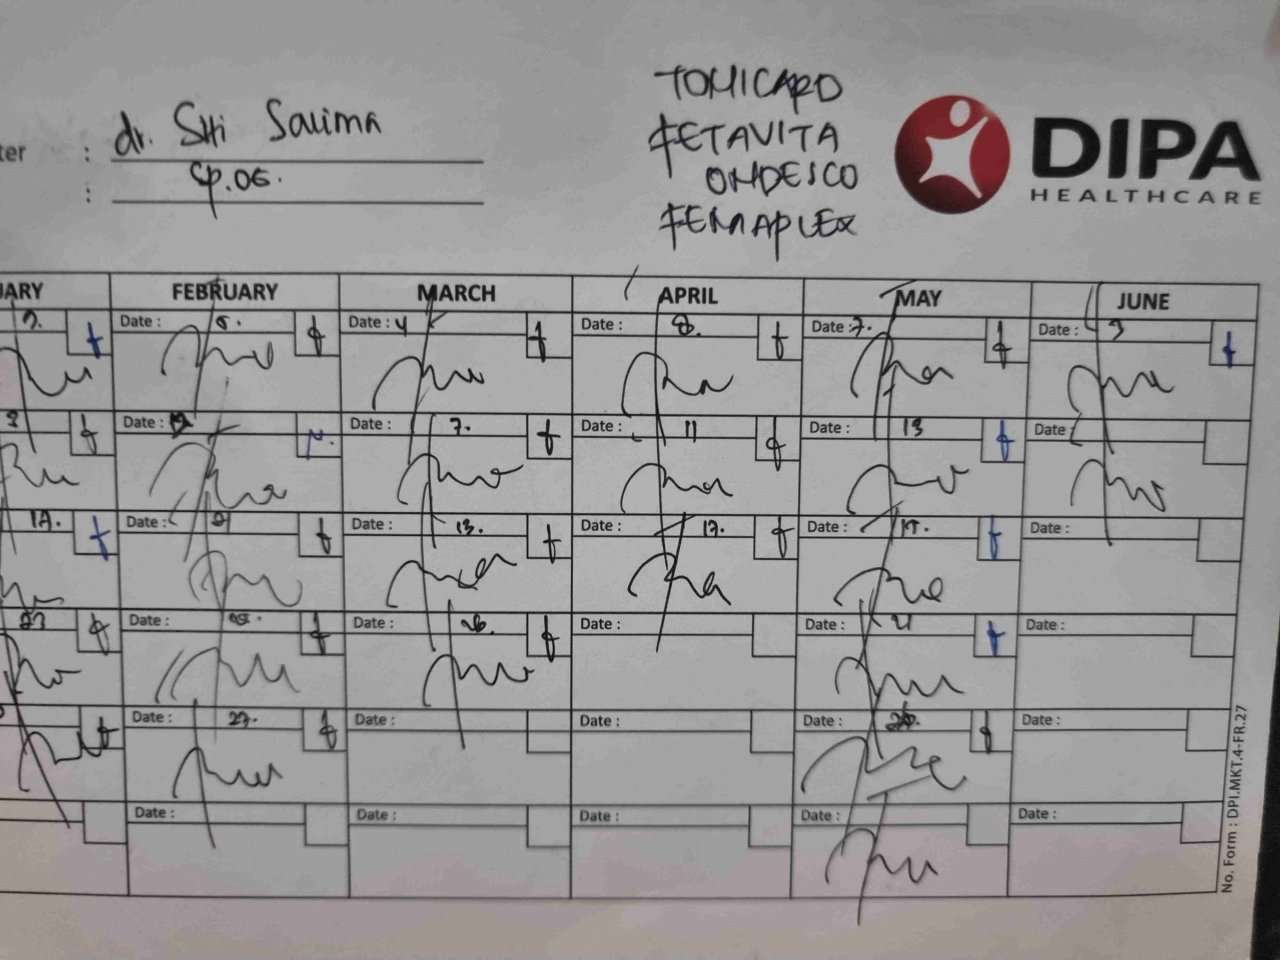 TOMICARD
dr. Siti Salima
FETAVITA
DIPA
ter :
ONDESCO
HEALTHCARE
: Sp.OG.
FERRAPLEX
UARY FEBRUARY MARCH APRIL MAY JUNE
3. Date : 6. Date : 4 Date : 8. Date : 7. Date : 3
Date : Date : 7. Date : 11 Date : 13 Date :
17. Date : 21 Date : 13. Date : 17. Date : 19. Date :
23 Date : Date : 26. Date : Date : 21 Date :
Date : 27. Date : Date : Date : Date :
Date : Date : Date : Date : Date :
No. Form : DPI.MKT.4-FR.27